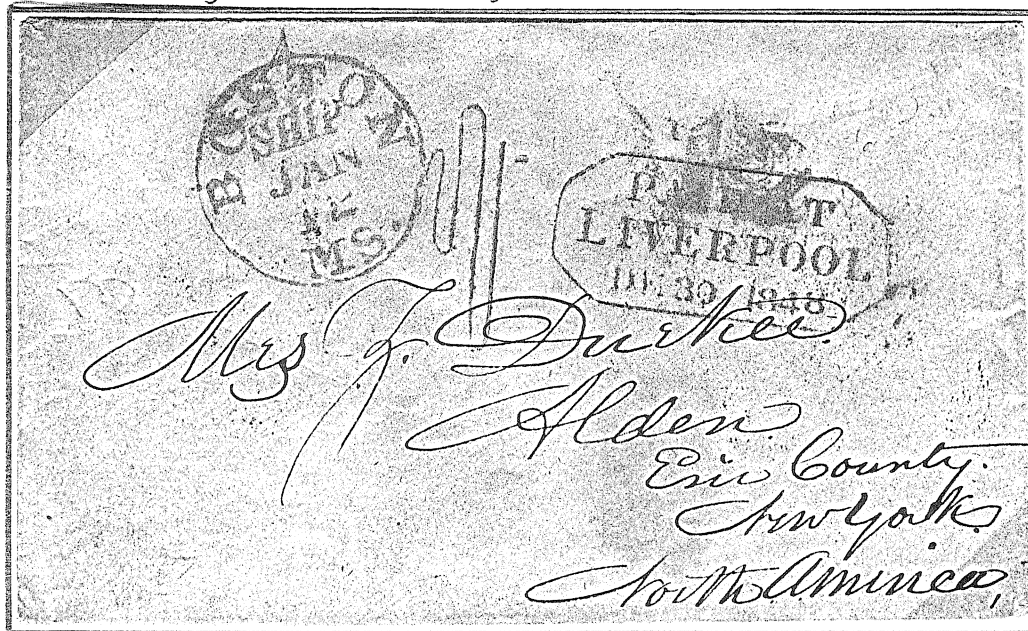 BOSTON
SHIP
JAN
MS.
LIVERPOOL
1848
Mrs F. Durkee
Alden
Erie County.
New York
North America,